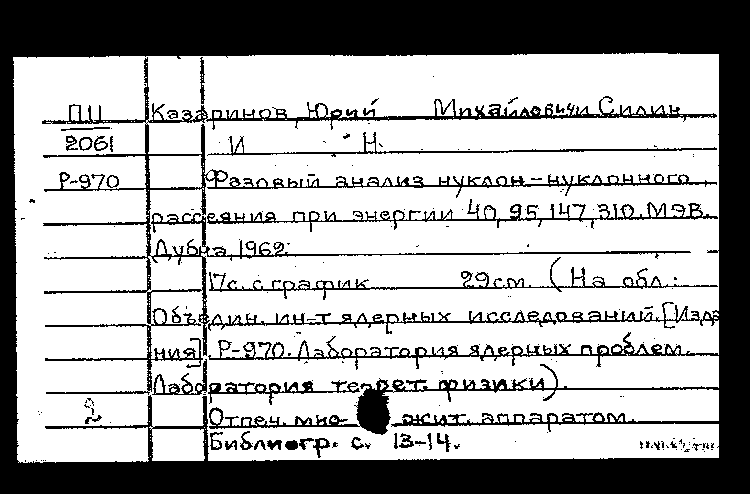 ПЦ Казаринов, Юрий Михайлович и Силин,
2061 И Н.
Р-970 Фазовый анализ нуклон-нуклонного
рассеяния при энергии 40, 95, 147, 310. МЭВ.
Дубна, 1962.
17с. с график 29см. (На обл.:
Объедин. ин-т ядерных исследований. [Изда
ния]. Р-970. Лаборатория ядерных проблем.
Лаборатория теорет. физики).
2 Отпеч. мно- ожит. аппаратом.
Библиогр. с. 13-14.